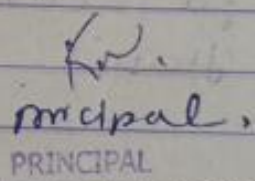 principal.
PRINCIPAL